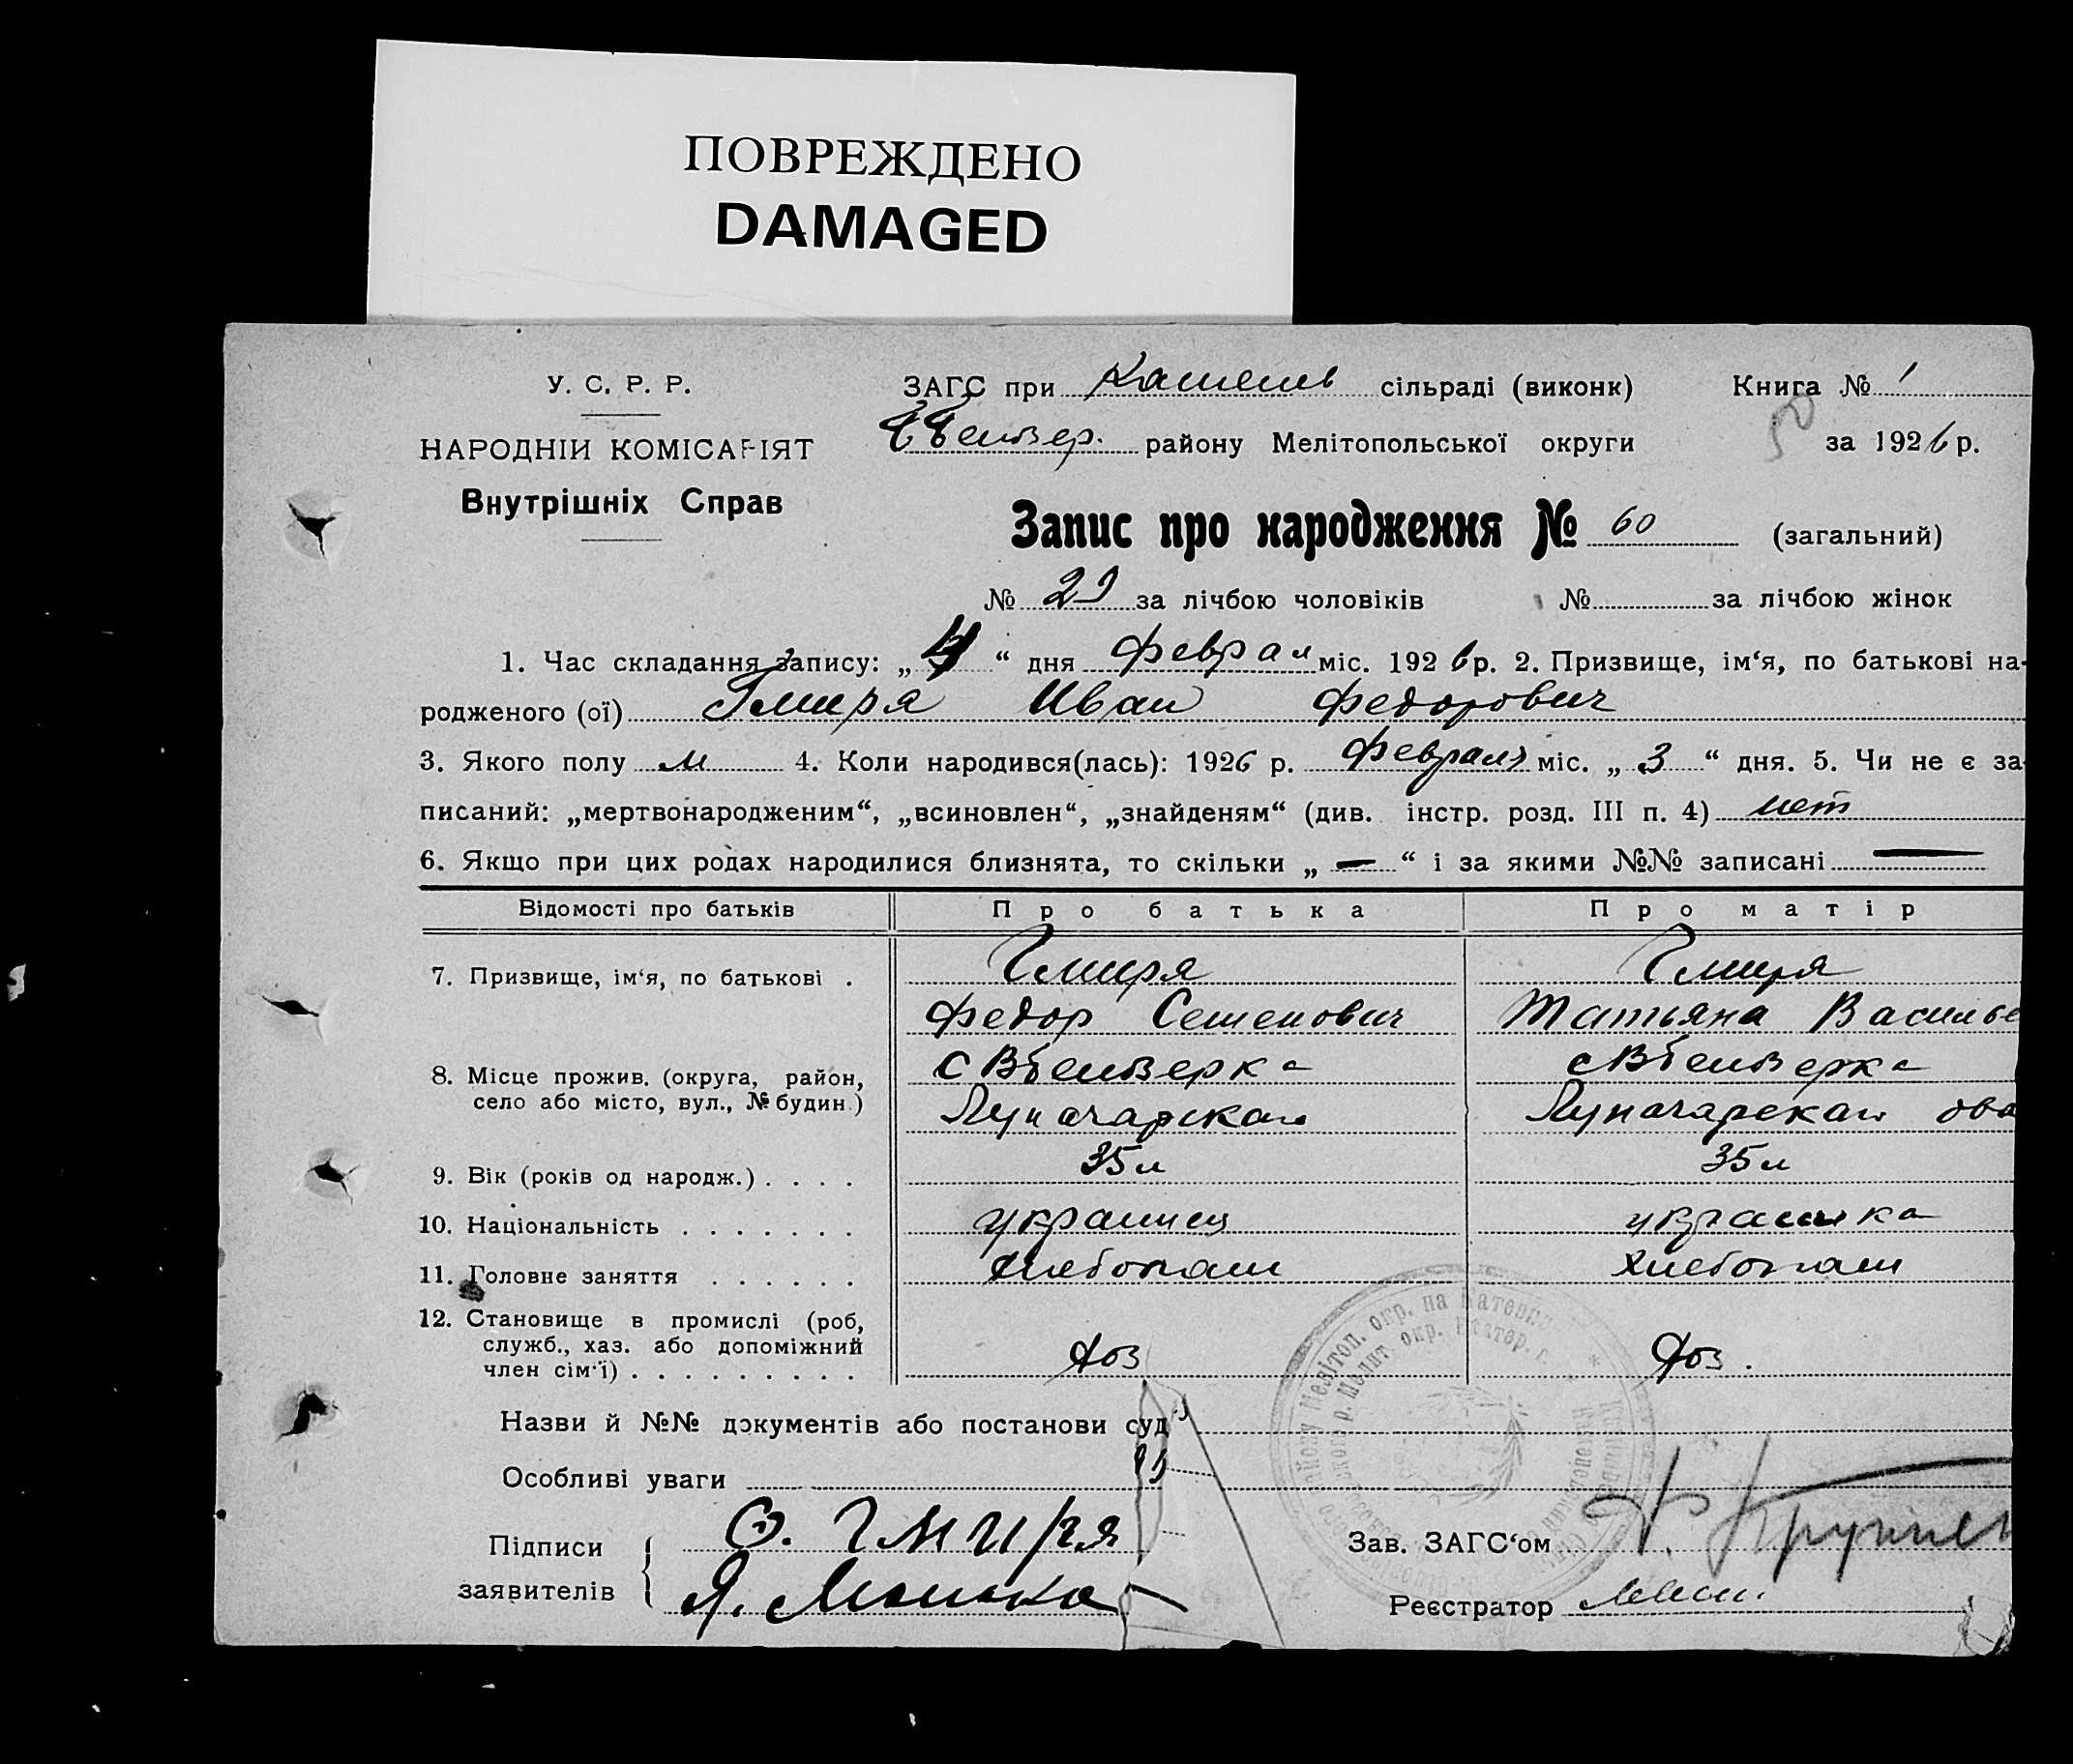 ПОВРЕЖДЕНО
DAMAGED
У. С. Р. Р.
НАРОДНІЙ КОМІСАРІЯТ
Внутрішніх Справ
ЗАГС при сільраді (виконк) Книга № 1
району Мелітопольської округи за 1926 р.
50
Запис про народження № 60 (загальний)
№ 29 за лічбою чоловіків № за лічбою жінок
1. Час складання запису: „4“ дня феврал міс. 1926 р. 2. Призвище, ім‘я, по батькові на-
родженого (ої) Гмиря Иван Федорович
3. Якого полу м 4. Коли народився(лась): 1926 р. Февраля міс. „3“ дня. 5. Чи не є за-
писаний: „мертвонародженим“, „всиновлен“, „знайденям“ (див. інстр. розд. III п. 4) нет
6. Якщо при цих родах народилися близнята, то скільки „—“ і за якими №№ записані —
Відомості про батьків Про батька Про матір
7. Призвище, ім‘я, по батькові . Гмиря Гмиря
Федор Семенович Татьяна Василье
8. Місце прожив. (округа, район,
село або місто, вул., № будин.) Луначарская Луначарская
9. Вік (років од народж.) . . . . 35 л 35 л
10. Національність . . . . . . . украинец украинка
11. Головне заняття . . . . . . хлебопаш хлебопаш
12. Становище в промислі (роб,
служб., хаз. або допоміжний
член сім‘ї) . . . . . . . . . хоз хоз.
Назви й №№ документів або постанови суд
Особливі уваги
Підписи Ф. Гмиря Зав. ЗАГС‘ом
заявителів Реєстратор